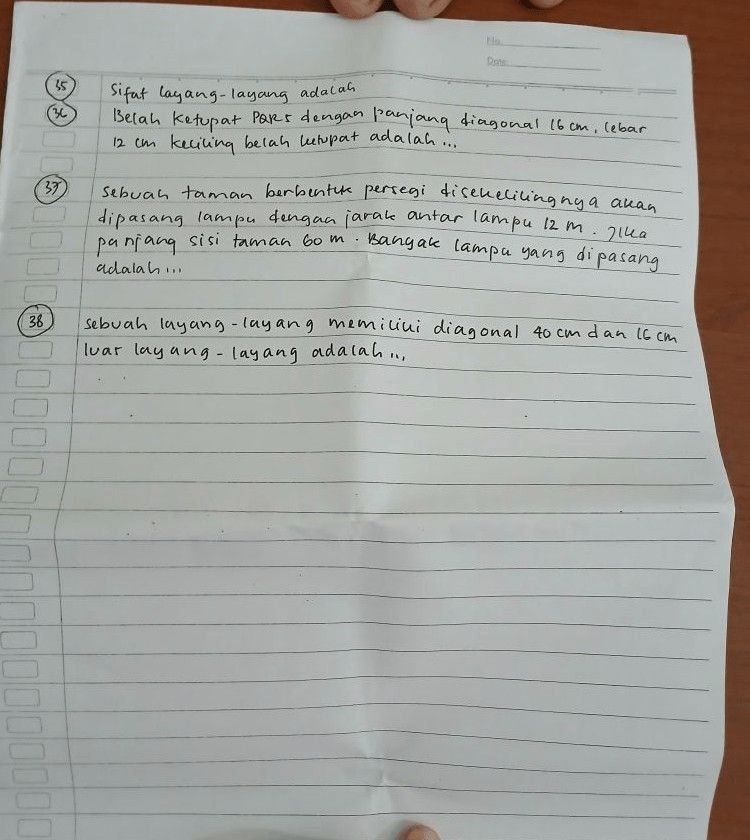 No.
Date:
35 Sifat layang-layang adalah
36 Belah Ketupat PQRS dengan panjang diagonal 16 cm, lebar
12 cm keliling belah ketupat adalah...
37 Sebuah taman berbentuk persegi disekelilingnya akan
dipasang lampu dengan jarak antar lampu 12 m. Jika
panjang sisi taman 60 m. Banyak lampu yang dipasang
adalah...
38 Sebuah layang-layang memiliki diagonal 40 cm dan 16 cm
luar layang-layang adalah...